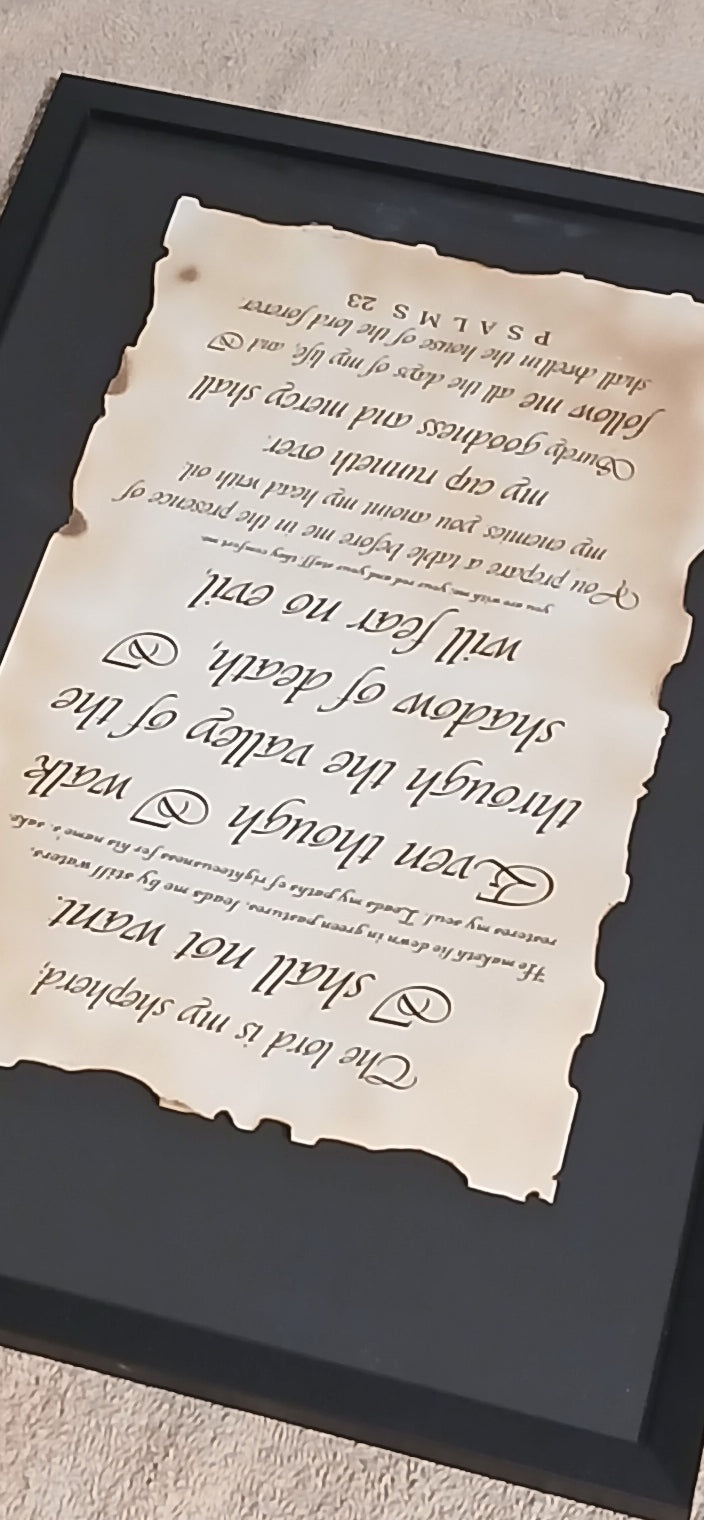 The lord is my shepherd,
I shall not want.
He maketh lie down in green pastures, leads me by still waters,
restores my soul. Leads my paths of righteousness for his name's sake.
Even though I walk
through the valley of the
shadow of death, I
will fear no evil,
you are with me, your rod and your staff, they comfort me
You prepare a table before me in the presence of
my enemies you anoint my head with oil
my cup runneth over.
Surely goodness and mercy shall
follow me all the days of my life, and I
shall dwell in the house of the lord forever.
PSALMS 23